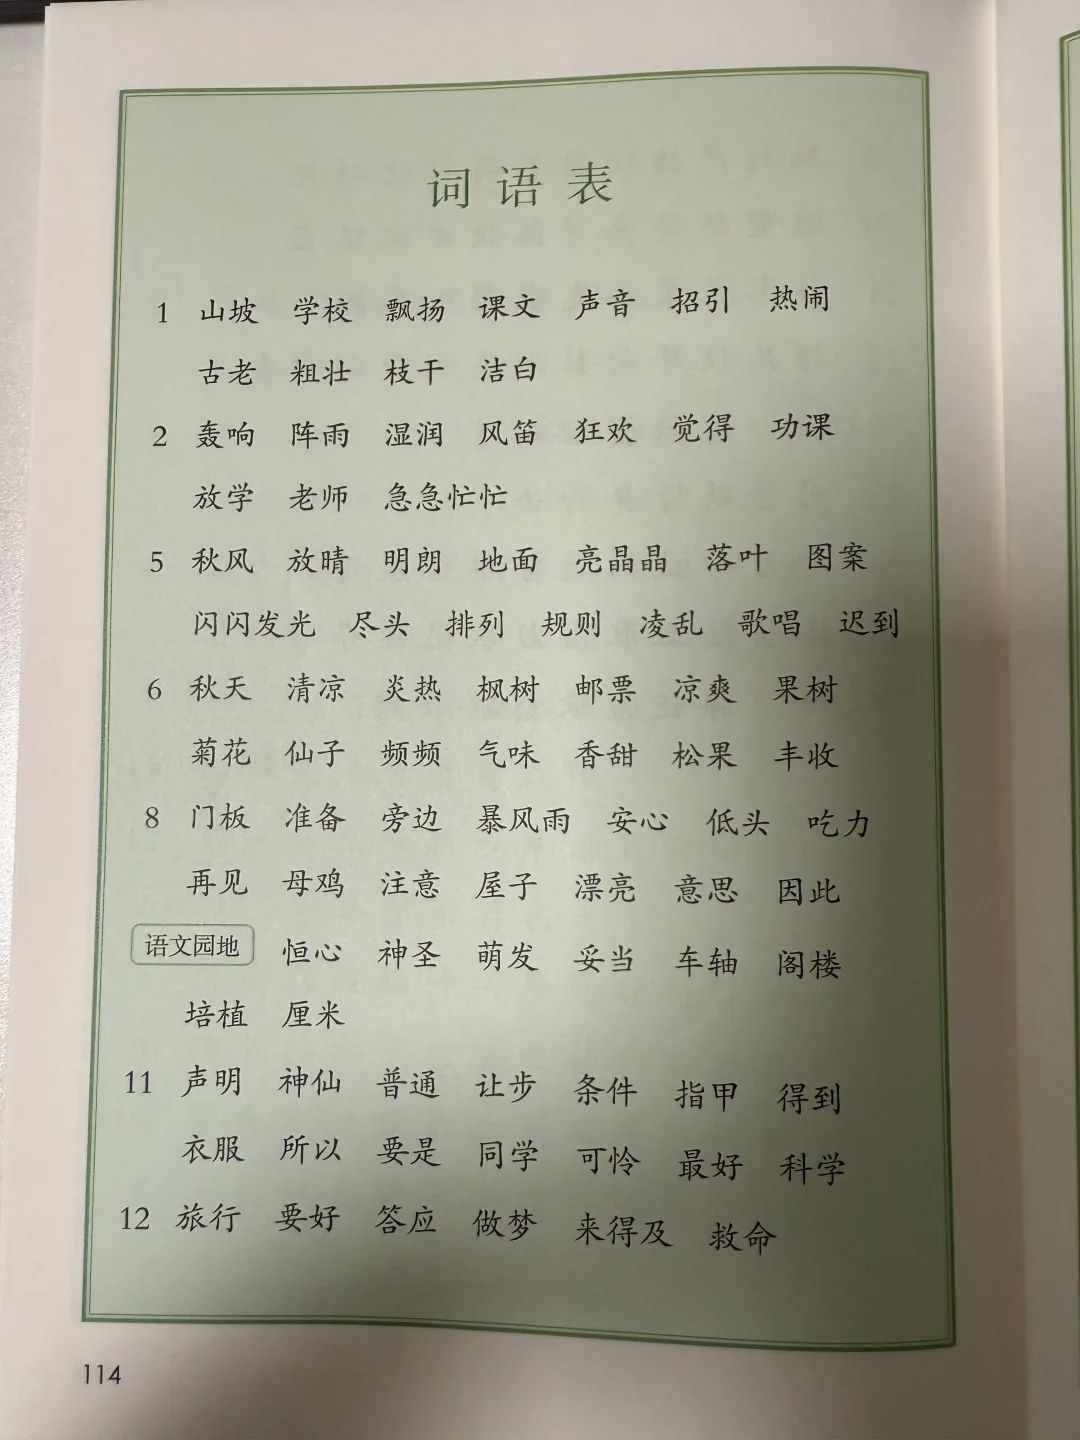 词语表
1 山坡 学校 飘扬 课文 声音 招引 热闹
古老 粗壮 枝干 洁白
2 轰响 阵雨 湿润 风笛 狂欢 觉得 功课
放学 老师 急急忙忙
5 秋风 放晴 明朗 地面 亮晶晶 落叶 图案
闪闪发光 尽头 排列 规则 凌乱 歌唱 迟到
6 秋天 清凉 炎热 枫树 邮票 凉爽 果树
菊花 仙子 频频 气味 香甜 松果 丰收
8 门板 准备 旁边 暴风雨 安心 低头 吃力
再见 母鸡 注意 屋子 漂亮 意思 因此
语文园地 恒心 神圣 萌发 妥当 车轴 阁楼
培植 厘米
11 声明 神仙 普通 让步 条件 指甲 得到
衣服 所以 要是 同学 可怜 最好 科学
12 旅行 要好 答应 做梦 来得及 救命
114